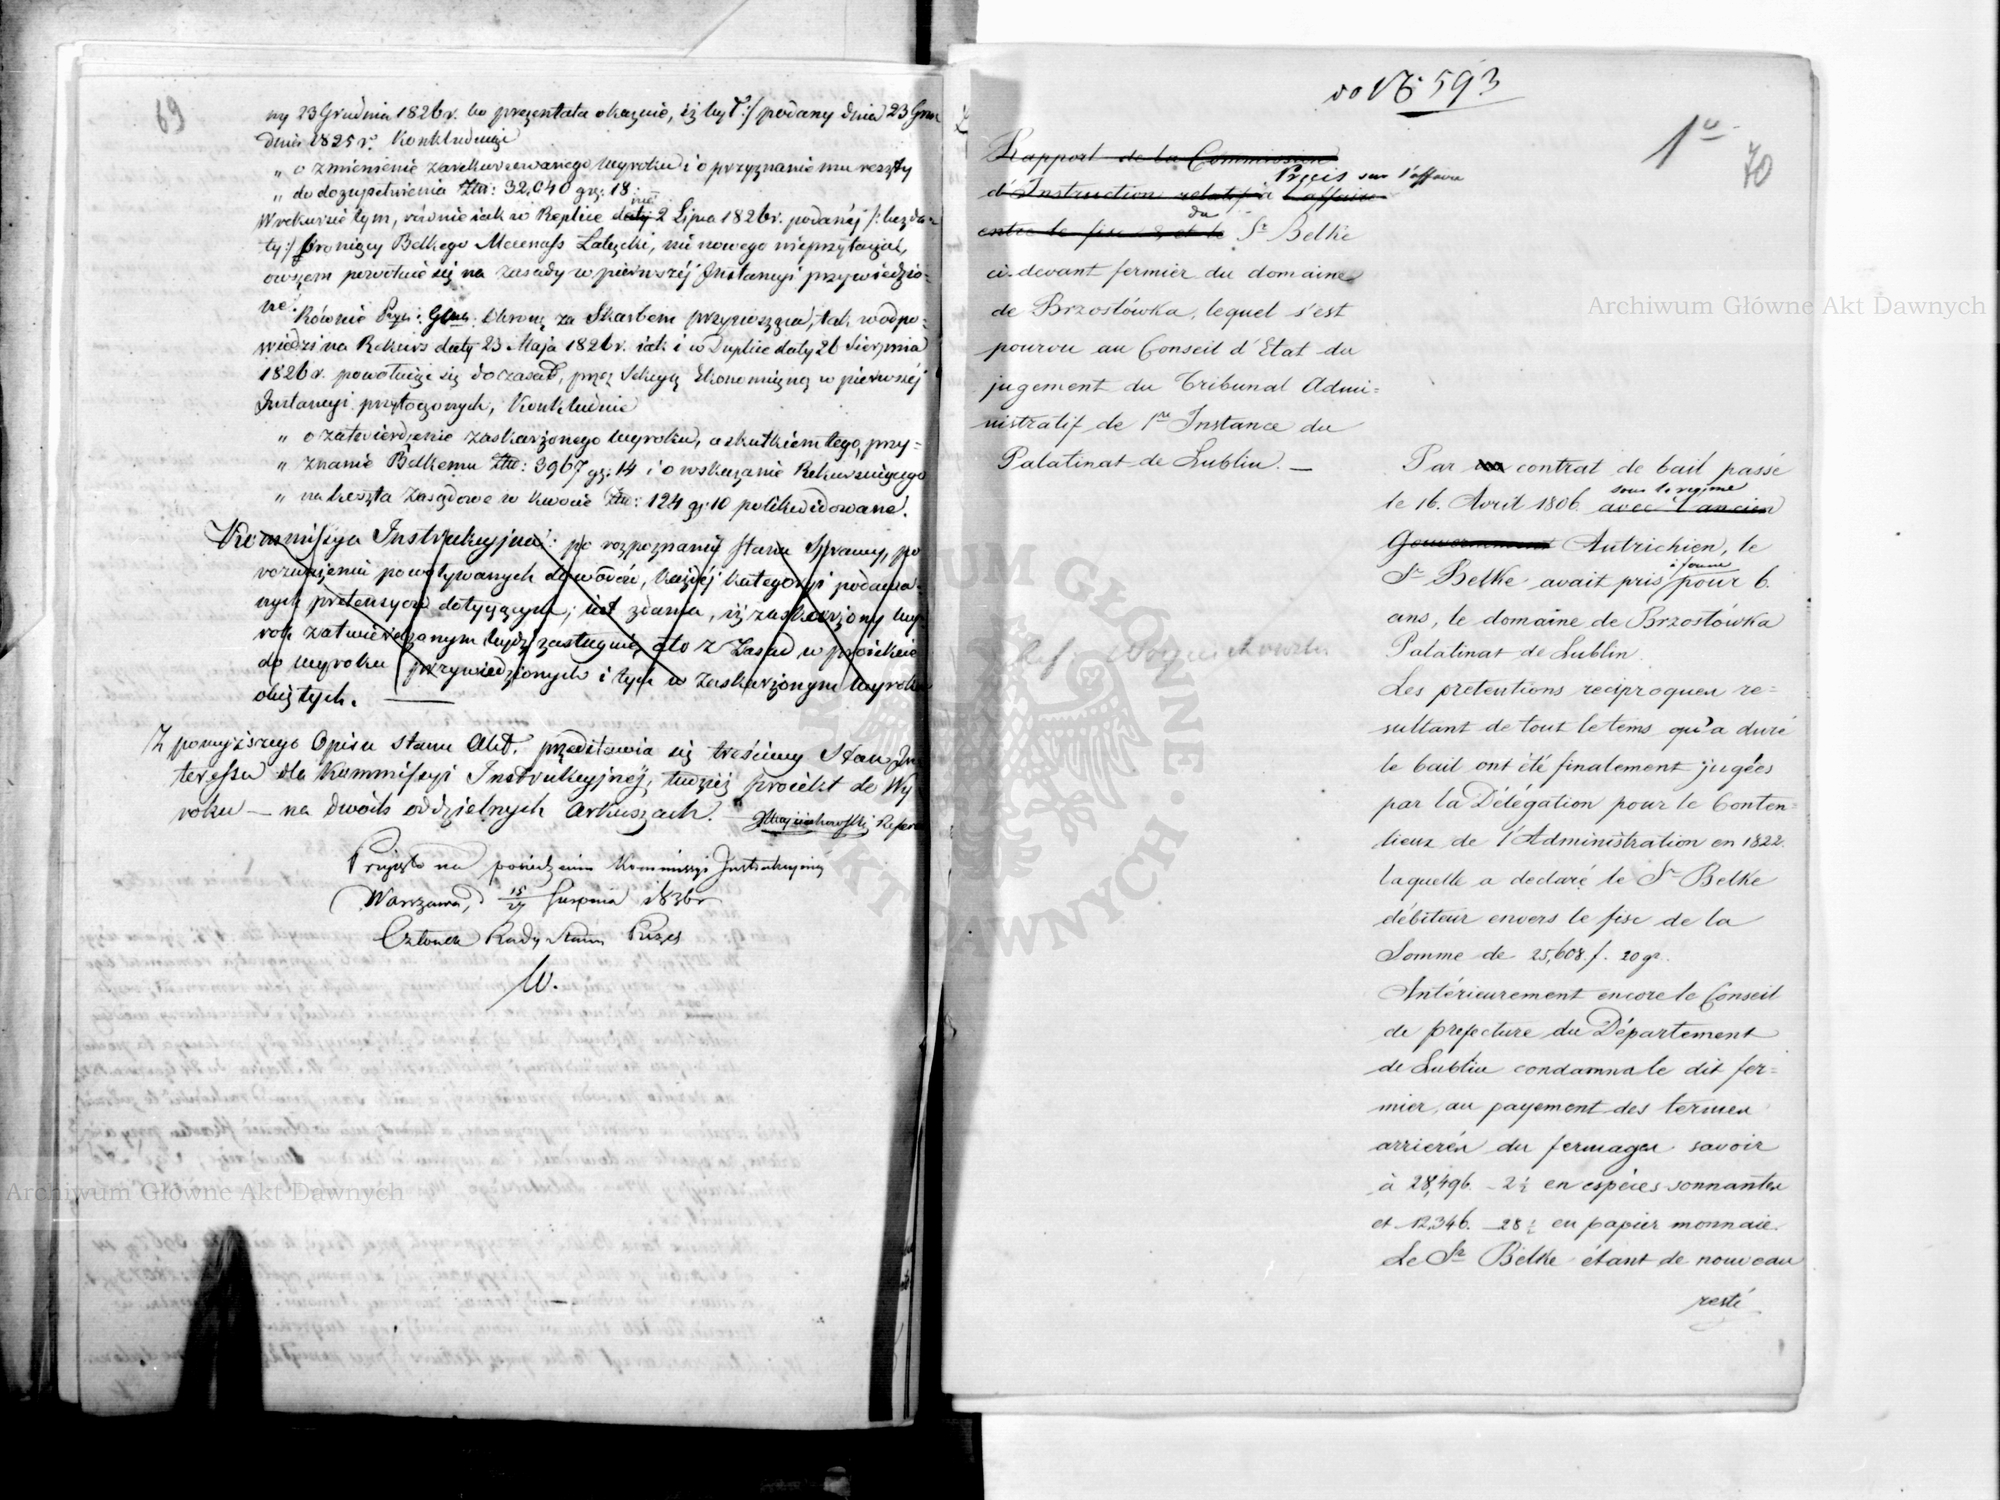 69
ny 23 Grudnia 1826 r. bo prezentata okazuje, iż był :/ podany dnia 23 Gru-
dnia 1825 r. Konkluduje
„ o zmienienie zarekurowanego wyroku i o przyznanie mu reszty
„ do dozupełnienia Złr: 32,040 gr: 18.
W rekursie tym, równie iak w Replice daty 2 Lipca 1826 r. podanéj /: bez da-
ty :/ broniący Belkego Mecenass Załęcki, nic nowego nieprzytacza,
owszem powołuie się na zasady w pierwszéj Instancyi przywiedzio-
ne.
Równie Obronę za Skarbem przynosząca, tak w odpo-
wiedzi na Rekurs daty 23 Maja 1826 r. iak i w Duplice daty 26 Sierpnia
1826 r. powołuiąc się do zasad, przez Sekcyę Ekonomiczną w pierwszéj
Instancyi przytoczonych, Konkluduie
„ o zatwierdzenie zaskarżonego wyroku, a skutkiem tego, przy-
„ znanie Belkemu Złr: 3967 gr: 14 i o wskazanie Rekurującego
„ na koszta zasądowe w kwocie Złr: 124 gr. 10 polikwidowane.
Kommissya Instrukcyjna: po rozpoznaniu stanu Sprawy, po
rozważeniu powoływanych dowodów, każdéj kategoryi podawa-
nych pretensyów dotyczącym, iest zdania, iż zaskarżony wy-
rok zatwierdzanym być zasługuie, a to z Zasad w proiekcie
do wyroku przywiedzionych i tych w Zaskarżonym wyroku
obiętych.
Z powyższego Opisu stanu Akt, przedstawia się treściwy Stan In-
teressu dla Kommissyi Instrukcyjnéj, tudzież proiekt do Wy
roku — na dwóch oddzielnych Arkuszach. JWojciechowski Refer
Przyjęto na posiedzeniu Kommissyi Instrukcyjnej
Warszawa, d 15/27 Sierpnia 1836 r
Członek Rady Stanu Prezes
W.
do No 593
1o
70
Rapport de la Commission
Précis sur l'affaire
d'Instruction relatif à l'affaire
du
entre le fisc et le Sr Belke
ci-devant fermier du domaine
de Brzostówka, lequel s'est
pourvu au Conseil d'Etat du
jugement du Tribunal Admi=
nistratif de 1re Instance du
Palatinat de Lublin. —
Ref: Wojciechowski
Par un contrat de bail passé
sous le regime
le 16. Avril 1806 avec l'ancien
Gouvernement Autrichien, le
à ferme
Sr Belke avait pris pour 6
ans, le domaine de Brzostówka
Palatinat de Lublin.
Les pretentions reciproques re=
sultant de tout le tems qu'a duré
le bail ont été finalement jugées
par la Délégation pour le Conten=
tieux de l'Administration en 1822.
laquelle a declaré le Sr Belke
débiteur envers le fisc de la
Somme de 25,608 f. 20 gr.
Antérieurement encore le Conseil
de prefecture du Département
de Lublin condamna le dit fer=
mier, au payement des termes
arrierés du fermages savoir
à 28,496. - 2½ en espèces sonnantes
et 12,346. - 28½ en papier monnaie.
Le Sr Belke étant de nouveau
resté
Archiwum Główne Akt Dawnych
Archiwum Główne Akt Dawnych